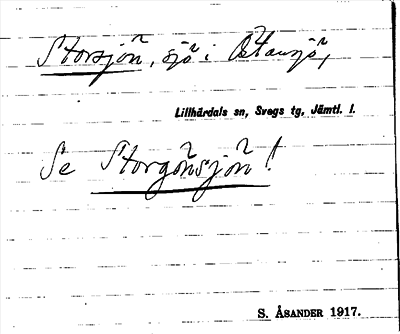 Storsjön, sjö i Östansjö,
Lillhärdals sn, Svegs tg, Jämtl. l.
Se Storgönsjön!
S. ÅSANDER 1917.